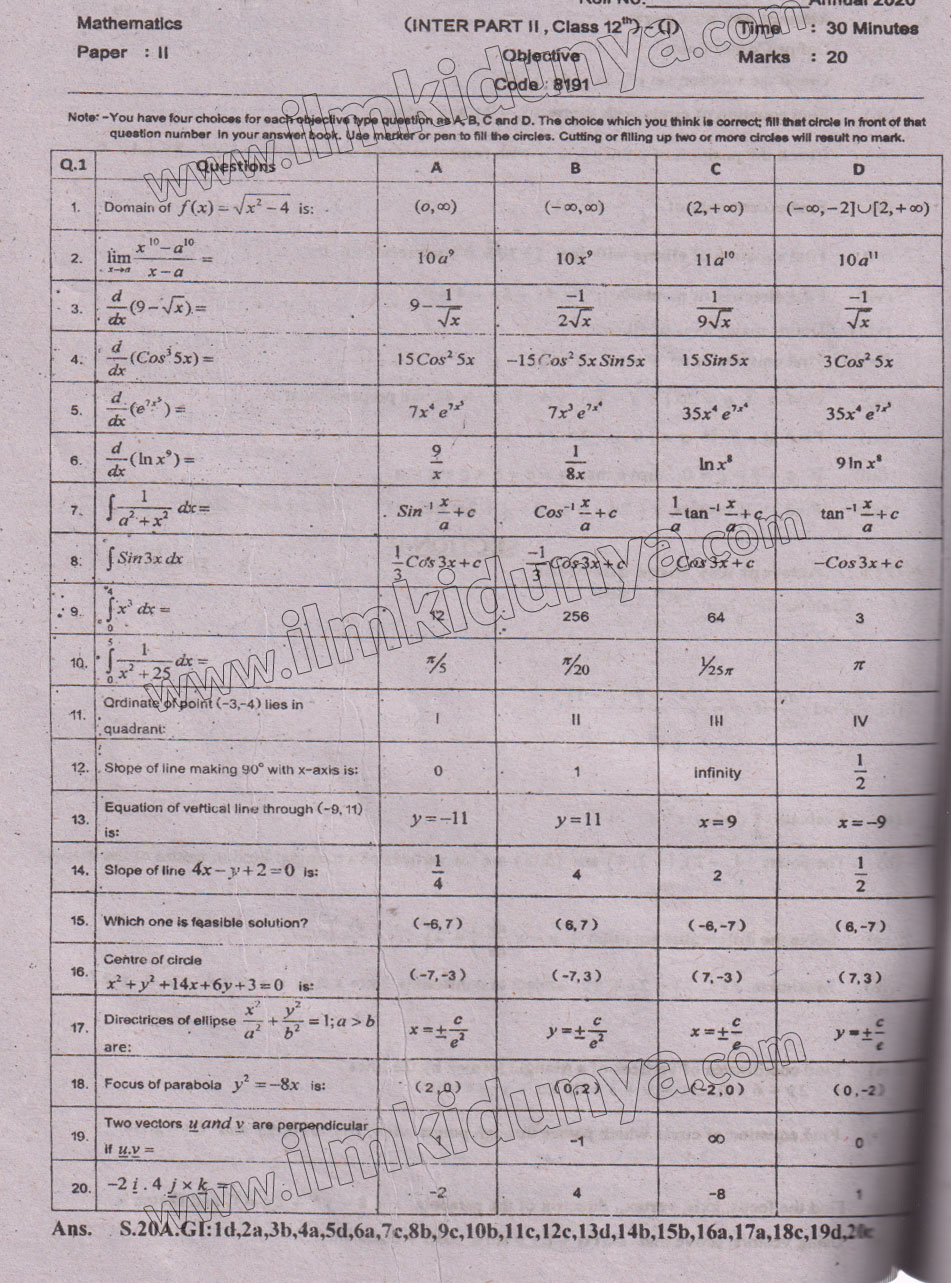 Roll No. Annual 2020
Mathematics (INTER PART II , Class 12th) - (I) Time : 30 Minutes
Paper : II Objective Marks : 20
Code : 8191
Note: -You have four choices for each objective type question as A, B, C and D. The choice which you think is correct; fill that circle in front of that
question number in your answer book. Use marker or pen to fill the circles. Cutting or filling up two or more circles will result no mark.
Q.1 Questions A B C D
1. Domain of f(x) = √(x² − 4) is: (o, ∞) (−∞, ∞) (2, +∞) (−∞, −2]∪[2, +∞)
2. lim x→a (x¹⁰ − a¹⁰)/(x − a) = 10a⁹ 10x⁹ 11a¹⁰ 10a¹¹
3. d/dx (9 − √x) = 9 − 1/√x −1/2√x 1/9√x −1/√x
4. d/dx (Cos³5x) = 15Cos²5x −15Cos²5xSin5x 15Sin5x 3Cos²5x
5. d/dx (e^7x⁵) = 7x⁴ e^7x⁵ 7x³ e^7x⁴ 35x⁴ e^7x⁴ 35x⁴ e^7x⁵
6. d/dx (ln x⁹) = 9/x 1/8x ln x⁸ 9 ln x⁸
7. ∫ 1/(a² + x²) dx = Sin⁻¹ x/a + c Cos⁻¹ x/a + c 1/a tan⁻¹ x/a + c tan⁻¹ x/a + c
8: ∫ Sin3x dx 1/3 Cos3x + c −1/3 Cos3x + c Cos3x + c −Cos3x + c
9. ∫₀⁴ x³ dx = 12 256 64 3
10. ∫₀⁵ 1/(x² + 25) dx = π/5 π/20 1/25π π
11. Ordinate of point (−3,−4) lies in
quadrant: I II III IV
12. Slope of line making 90° with x-axis is: 0 1 infinity 1/2
13. Equation of vertical line through (−9, 11)
is: y = −11 y = 11 x = 9 x = −9
14. Slope of line 4x − y + 2 = 0 is: 1/4 4 2 1/2
15. Which one is feasible solution? (-6, 7) (6, 7) (-6, -7) (6, -7)
16. Centre of circle
x² + y² + 14x + 6y + 3 = 0 is: (-7, -3) (-7, 3) (7, -3) (7, 3)
17. Directrices of ellipse x²/a² + y²/b² = 1; a > b
are: x = ± c/e² y = ± c/e² x = ± c/e y = ± c/e
18. Focus of parabola y² = −8x is: (2, 0) (0, 2) (-2, 0) (0, -2)
19. Two vectors u and v are perpendicular
if u.v = 1 -1 ∞ 0
20. −2 i . 4 j × k = -2 4 -8 1
Ans. S.20A.GI:1d,2a,3b,4a,5d,6a,7c,8b,9c,10b,11c,12c,13d,14b,15b,16a,17a,18c,19d,20c
www.ilmkidunya.com
www.ilmkidunya.com
www.ilmkidunya.com
www.ilmkidunya.com